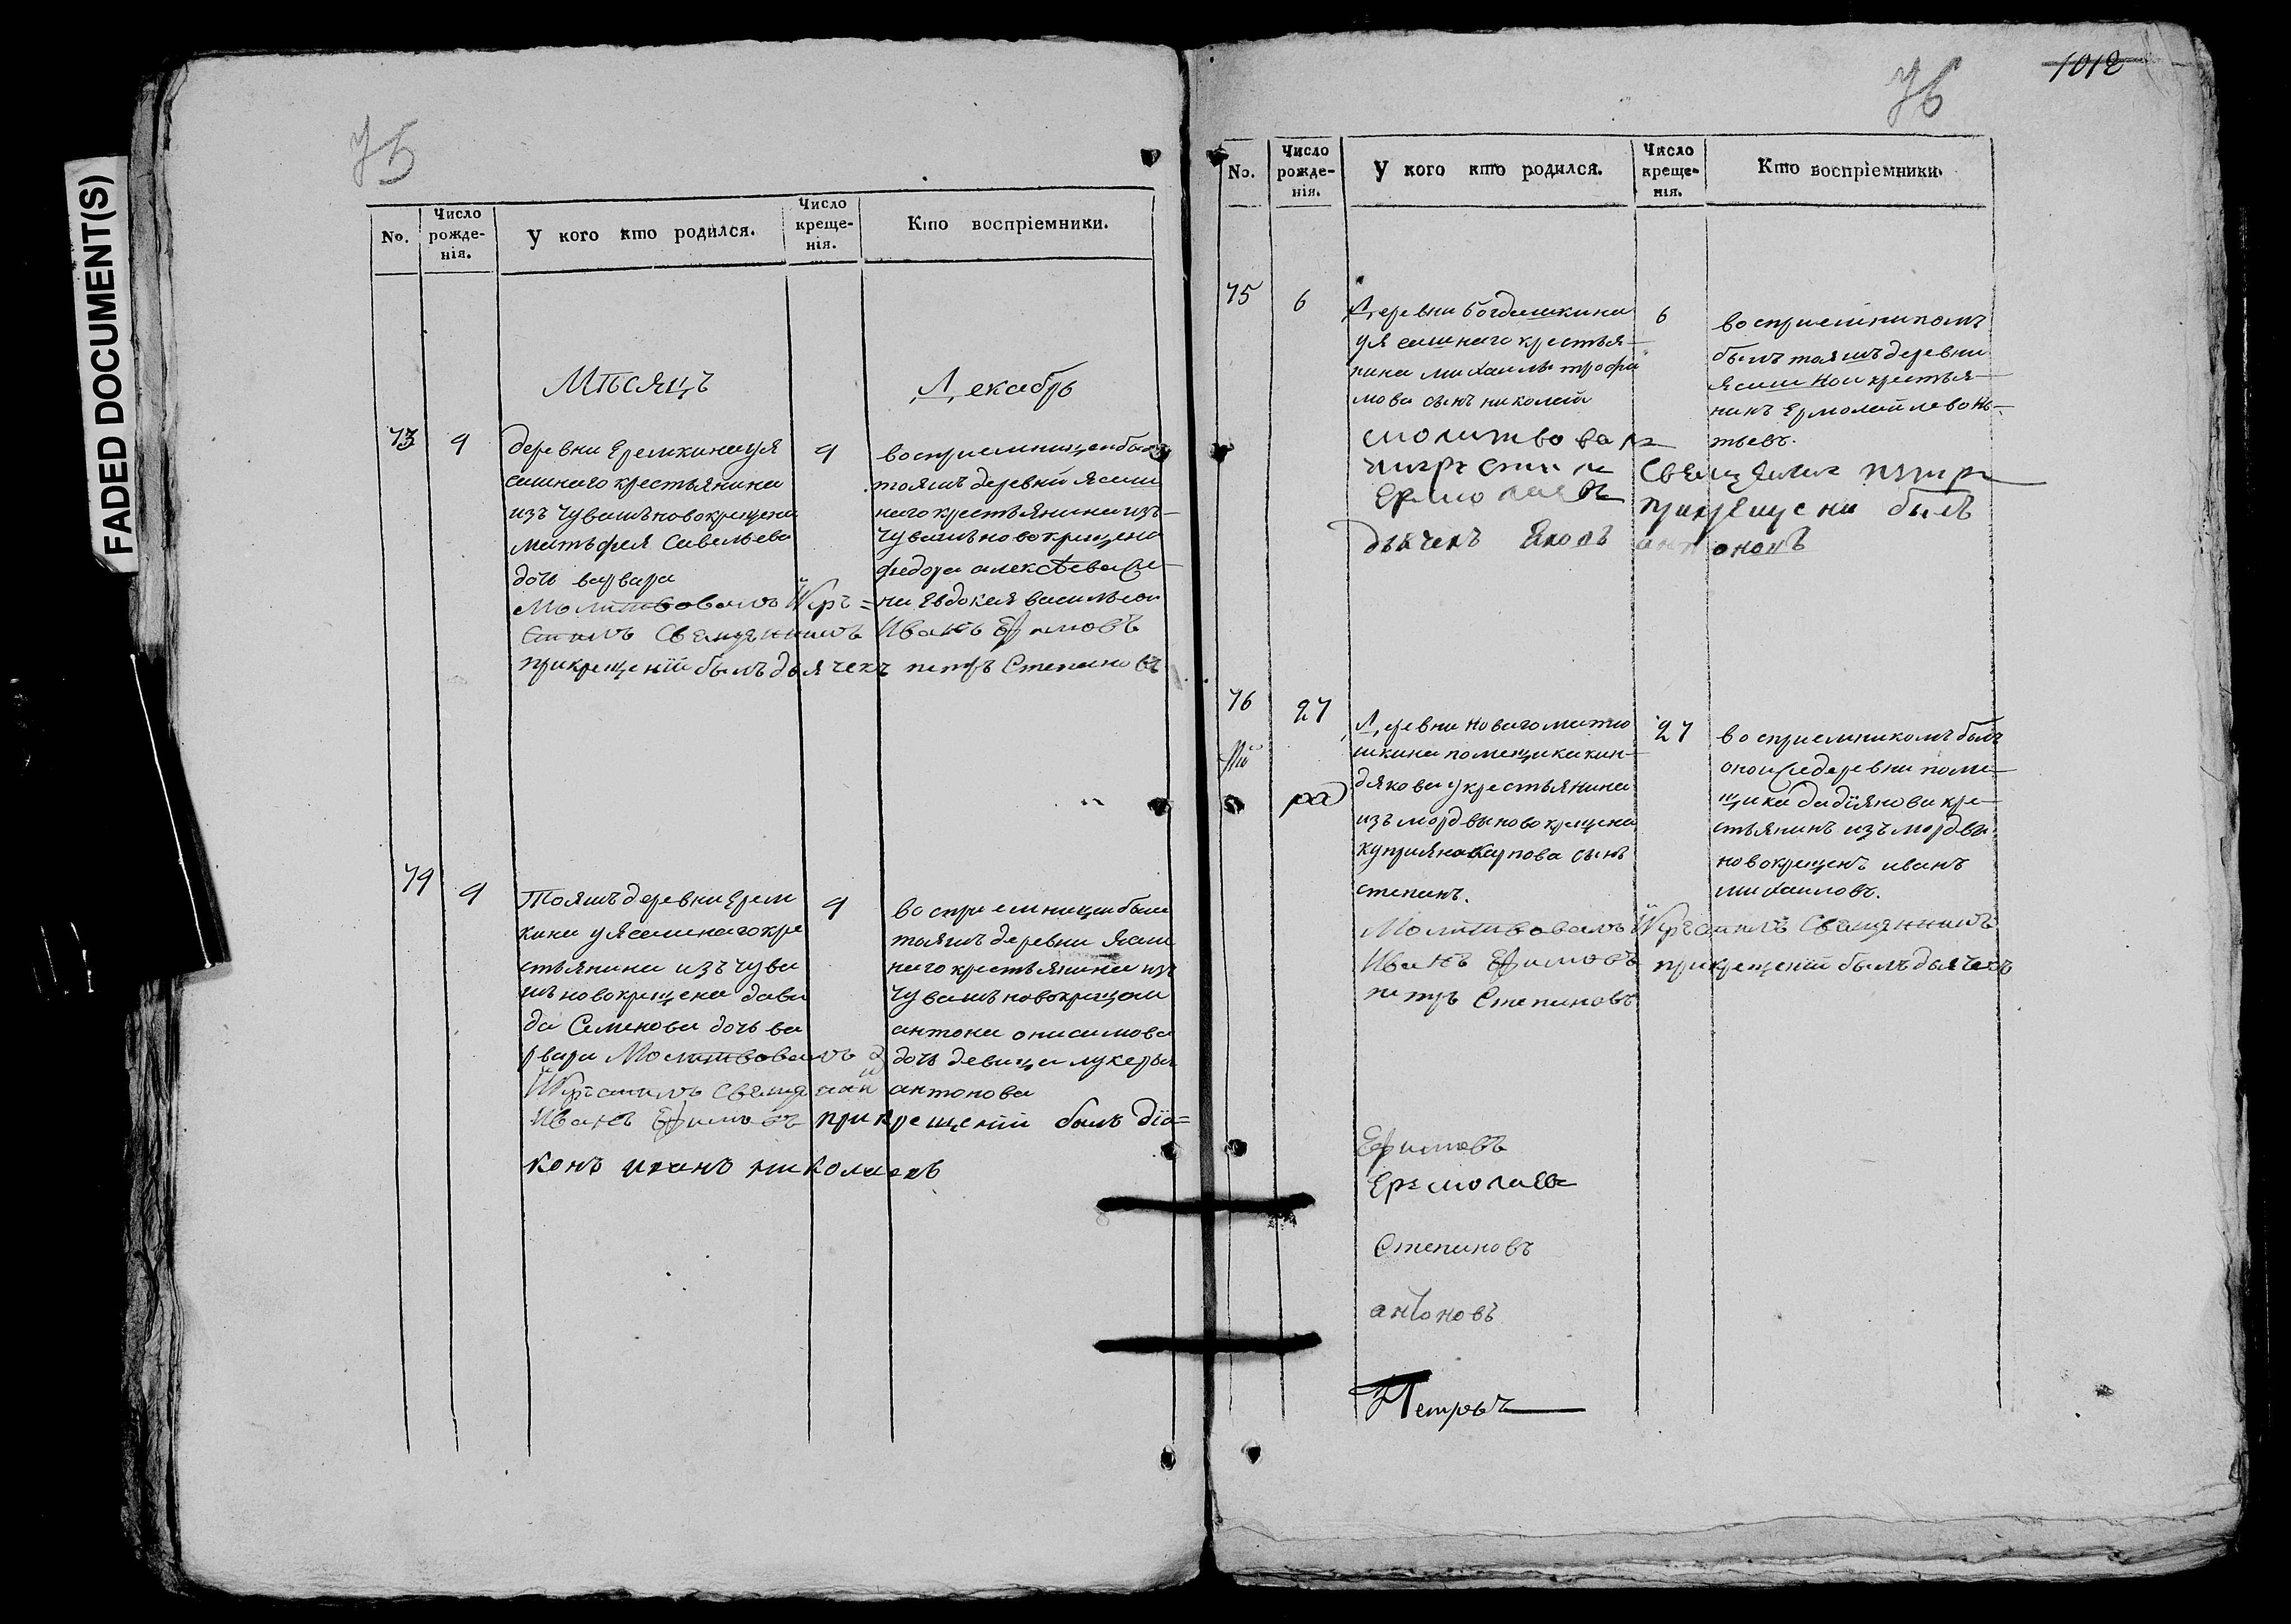 FADED DOCUMENT(S)
75
No.
Число рожде-нія.
У кого кто родился.
Число креще-нія.
Кто воспріемники.
Мѣсяцъ
Декабрь
73
9
деревни Еремкина уя
сашнаго крестьянина
изъ чувашъ новокрещена
матьфея Савельева
дочь варвара
Молитвовалъ Икръ=
стилъ Священникъ Иванъ Ефимовъ
прикрещеніи былъ дьячекъ петръ Степановъ
9
восприемницеи была
тояжъ деревни ясаш
наго крестьянина изъ
чувашъ новокрещена
федора алексѣева же
на Евдокея васильева
74
9
Тояжъ деревни Ерем
кина уясашнаго кре
стьянина изъ чува
шъ новокрещена дави
да Семенова дочь ва
рвара Молитвовалъ
Икрестилъ Священникъ
Иванъ Ефимовъ прикрещеніи былъ діа=
конъ иванъ николаевъ
9
восприемницеи была
тояжъ деревни ясаш
наго крестьянина изъ
чувашъ новокрещена
антона онисимова
дочь девица лукерья
антонова
1012
76
No.
Число рожде-нія.
У кого кто родился.
Число креще-нія.
Кто воспріемники.
75
6
Деревни богдашкина
уя сашнаго крестья-
нина михаилы трофи
мова сынъ николай
молитвовалъ
икрестилъ Священникъ петръ
Ермолаевъ прикрещении былъ
дьячекъ Яковъ антоновъ
6
восприемникомъ
былъ тояжъ деревни
ясашной крестья-
нинъ Ермолай леонь-
тьевъ.
76
27
Деревни Новаго матю
шкина помещика кин-
дякова укрестьянина
изъ мордвы новокрещена
куприяна Карпова сынъ
степанъ.
Молитвовалъ Икрестилъ Священникъ
Иванъ Ефимовъ прикрещеніи былъ дьячекъ
петръ Степановъ
27
восприемникомъ былъ
оной же деревни поме-
щика дадіянова кре-
стьянинъ изъ мордвы
новокрещенъ иванъ
михаиловъ.
Ефимовъ
Ермолаевъ
Степановъ
антоновъ
Петровъ